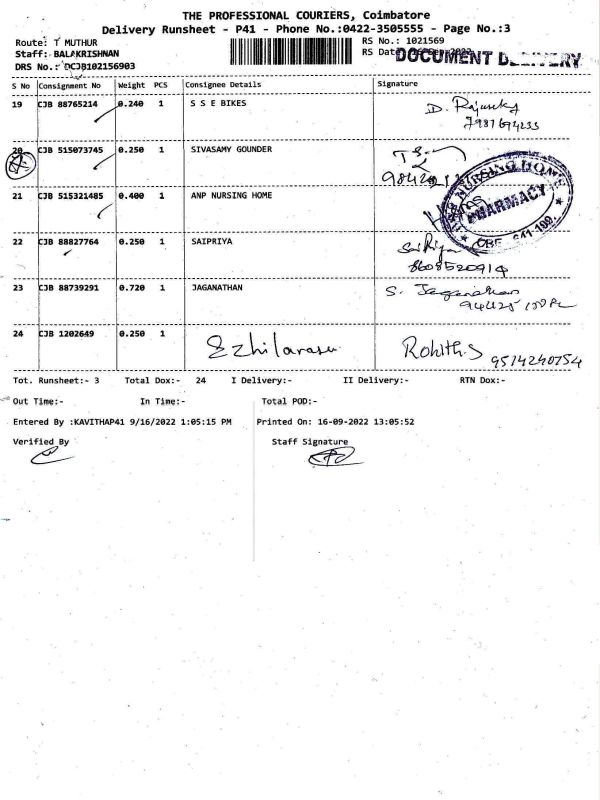 THE PROFESSIONAL COURIERS, Coimbatore
Delivery Runsheet - P41 - Phone No.:0422-3505555 - Page No.:3
Route: T MUTHUR
RS No.: 1021569
Staff: BALAKRISHNAN
RS Dat
DOCUMENT DELIVERY
DRS No.: DCJB102156903
S No Consignment No Weight PCS Consignee Details Signature
19 CJB 88765214 0.240 1 S S E BIKES
D.
20 CJB 515073745 0.250 1 SIVASAMY GOUNDER
21 CJB 515321485 0.400 1 ANP NURSING HOME
NURSING HOME
PHARMACY
22 CJB 88827764 0.250 1 SAIPRIYA
8608520914
23 CJB 88739291 0.720 1 JAGANATHAN
S. Jaganathan
24 CJB 1202649 0.250 1 Ezhilarasu Rohith.S
9514240754
Tot. Runsheet:- 3 Total Dox:- 24 I Delivery:- II Delivery:- RTN Dox:-
Out Time:- In Time:- Total POD:-
Entered By :KAVITHAP41 9/16/2022 1:05:15 PM Printed On: 16-09-2022 13:05:52
Verified By Staff Signature